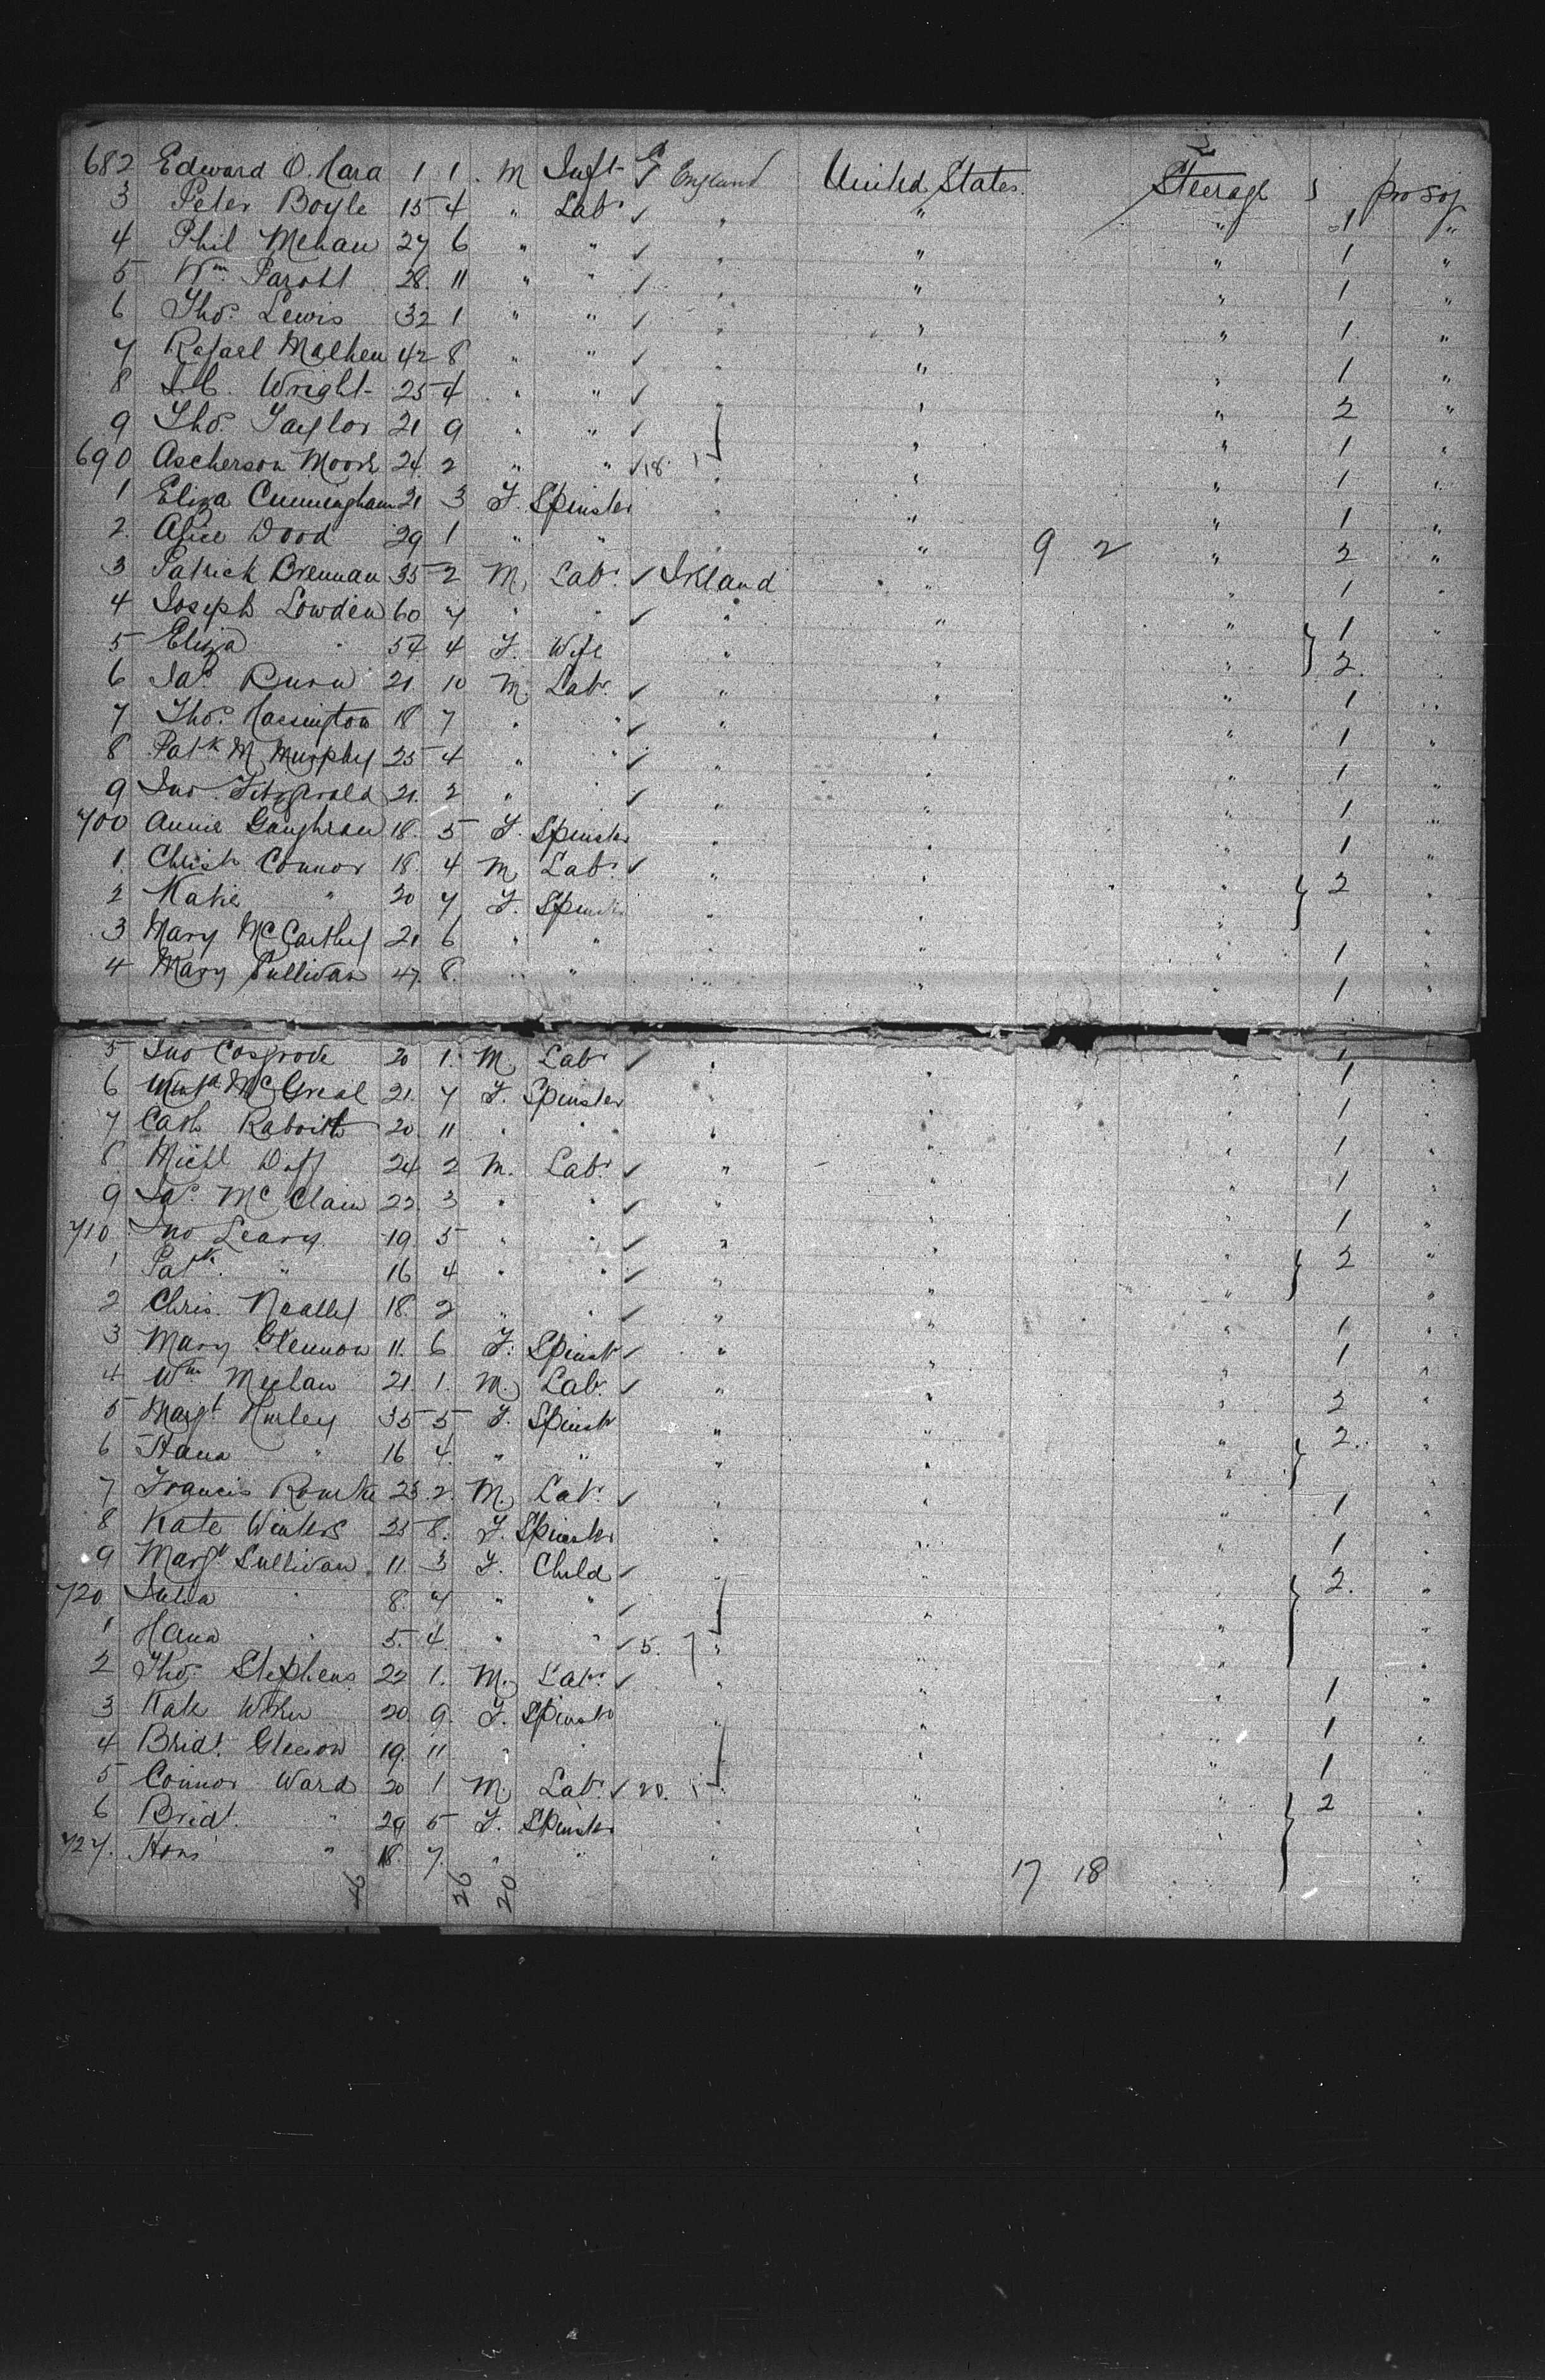 682 Edward O.Hara 1 1. M Inft England United States. Steerage pro soj
3 Peter Boyle 15 4 " Labr ✓ " " " 1 "
4 Phil Mehan 27 6 " " ✓ " " " 1 "
5 Wm 28. 11 " " ✓ " " " 1 "
6 Thos. Lewis 32 1 " " ✓ " " " 1. "
7 Rafael 42 8 " " ✓ " " " 1 "
8 Wright 25 4 " " ✓ " " " 2 "
9 Thos. Taylor 21 9 " " ✓ " " " 1 "
690 Ascherson Moore 24. 2 " " ✓ 18. " " " 1 "
1 Eliza Cunningham 21 3 F. Spinster " " " 1 "
2. Alice Dood 29 1 " " " " 9 2 " 2 "
3 Patrick Brennan 35 2 M. Labr. ✓ Ireland " " 1 "
4 Joseph Lowden 60 7 " " ✓ " " " 1 "
5 Eliza " 54 4 F. Wife " " " 2. "
6 Jas. 21. 10 M. Labr. ✓ " " " 1 "
7 Thos. Harrington 18 7 " " ✓ " " " 1 "
8 Patk M Murphy 25 4 " " ✓ " " " 1 "
9 Jno. Fitzgerald 21. 2 " " ✓ " " " 1 "
700 Annie Gaughran 18. 5 F. Spinster " " " 1 "
1. Christr Connor 18. 4 M. Labr. ✓ " " " 2 "
2 Katie " 20 7 F. Spinstr " " " "
3 Mary McCarthy 21. 6 " " " " " 1 "
4 Mary Sullivan 47. 8. " " " " " 1 "
5 Jno Cosgrove 20 1. M. Labr ✓ " " " 1
6 McGreal 21. 7 F. Spinster " " " 1 "
7 Cath 20. 11 " " " " " 1 "
8. Michl Duff 24 2 M. Labr. ✓ " " " 1 "
9 Jas. McClain 22. 3 " " ✓ " " " 1 "
710. Jno Leary 19. 5 " " ✓ " " " 2 "
1 Patk. " 16 4 " " ✓ " " " "
2 Chris. Nealley 18. 2 " " ✓ " " " 1 "
3 Mary Glennon 11. 6 F. Spinstr ✓ " " " 1 "
4 Wm Meehan 21. 1. M. Labr. ✓ " " " 2 "
5 Margt Hurley 35 5 F. Spinstr " " " 2. "
6 Hana " 16 4 " " " " " "
7 Francis Rourke 23. 2. M. Labr. ✓ " " " 1 "
8 Kate Winters 25 8. F. Spinster " " " 1 "
9 Margt Sullivan 11. 3 F. Child ✓ " " " 2. "
720 Julia " 8. 7 " " ✓ " " "
1 Hana " 5. 4. " " ✓ 5. " " " "
2 Thos. Stephens 22 1. M. Labr. ✓ " " " 1 "
3 Kate 20. 9. F. Spinstr " " " 1 "
4 Bridt. Gleeson 19. 11 " " " " " 1 "
5 Connor Ward 20 1 M. Labr. ✓ 20. " " " 2 "
6 Bridt. " 29 5 F. Spinster " " " "
727. " 18. 7. " " " 17 18 " "
46 26 20